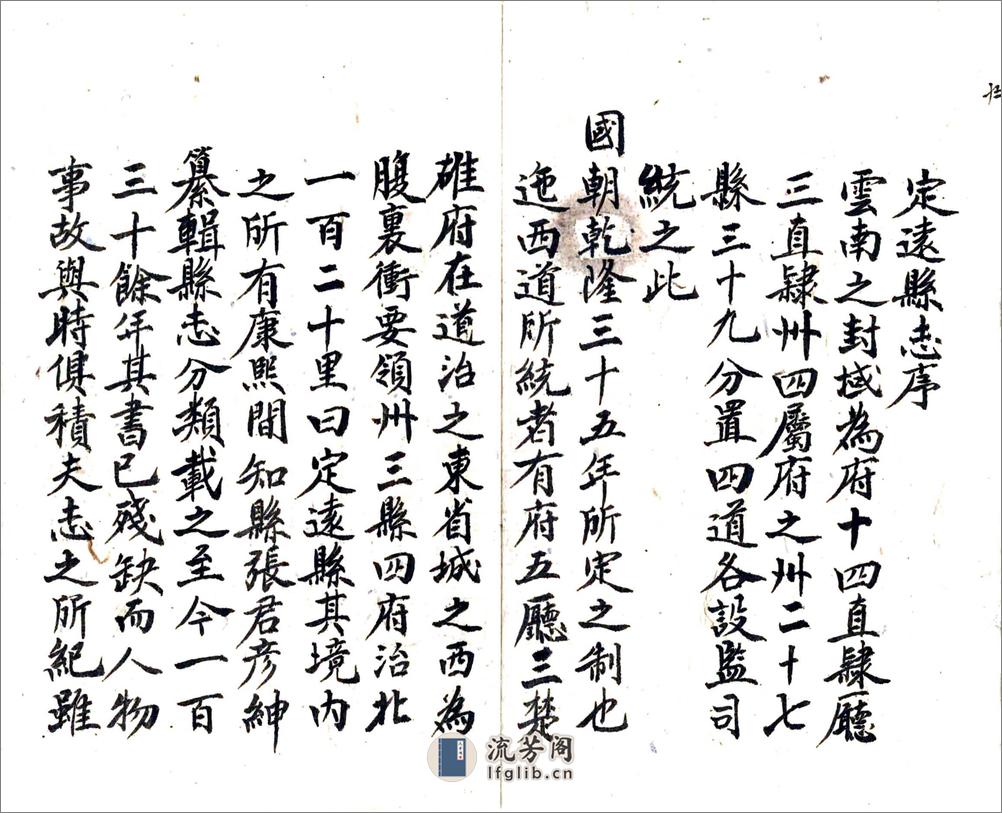 定遠縣志序
雲南之封域為府十四直隸廳
三直隸州四屬府之州二十七
縣三十九分置四道各設監司
統之此
國朝乾隆三十五年所定之制也
迤西道所統者有府五廳三楚
雄府在道治之東省城之西為
腹裏衝要領州三縣四府治北
一百二十里曰定遠縣其境內
之所有康熙間知縣張君彥紳
纂輯縣志分類載之至今一百
三十餘年其書已殘缺而人物
事故與時俱積夫志之所紀雖
流芳阁
lfglib.cn